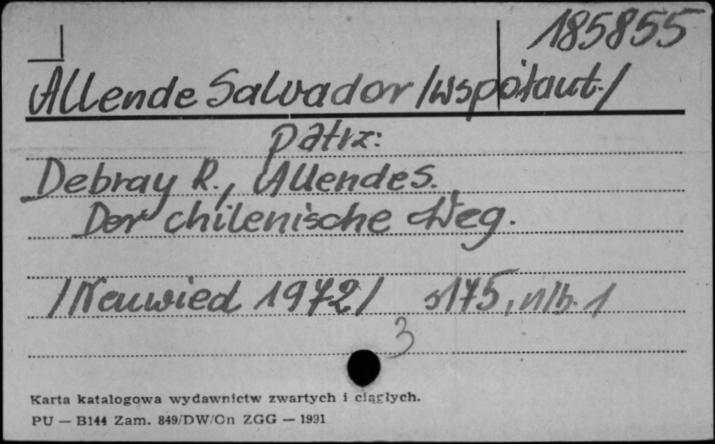 185855
Allende Salvador /współaut./
patrz:
Debray R., Allende S.
Der chilenische Weg.
/Neuwied 1972/ s175, nlb. 1
3
Karta katalogowa wydawnictw zwartych i ciągłych.
PU — B144 Zam. 849/DW/Cn ZGG — 1991